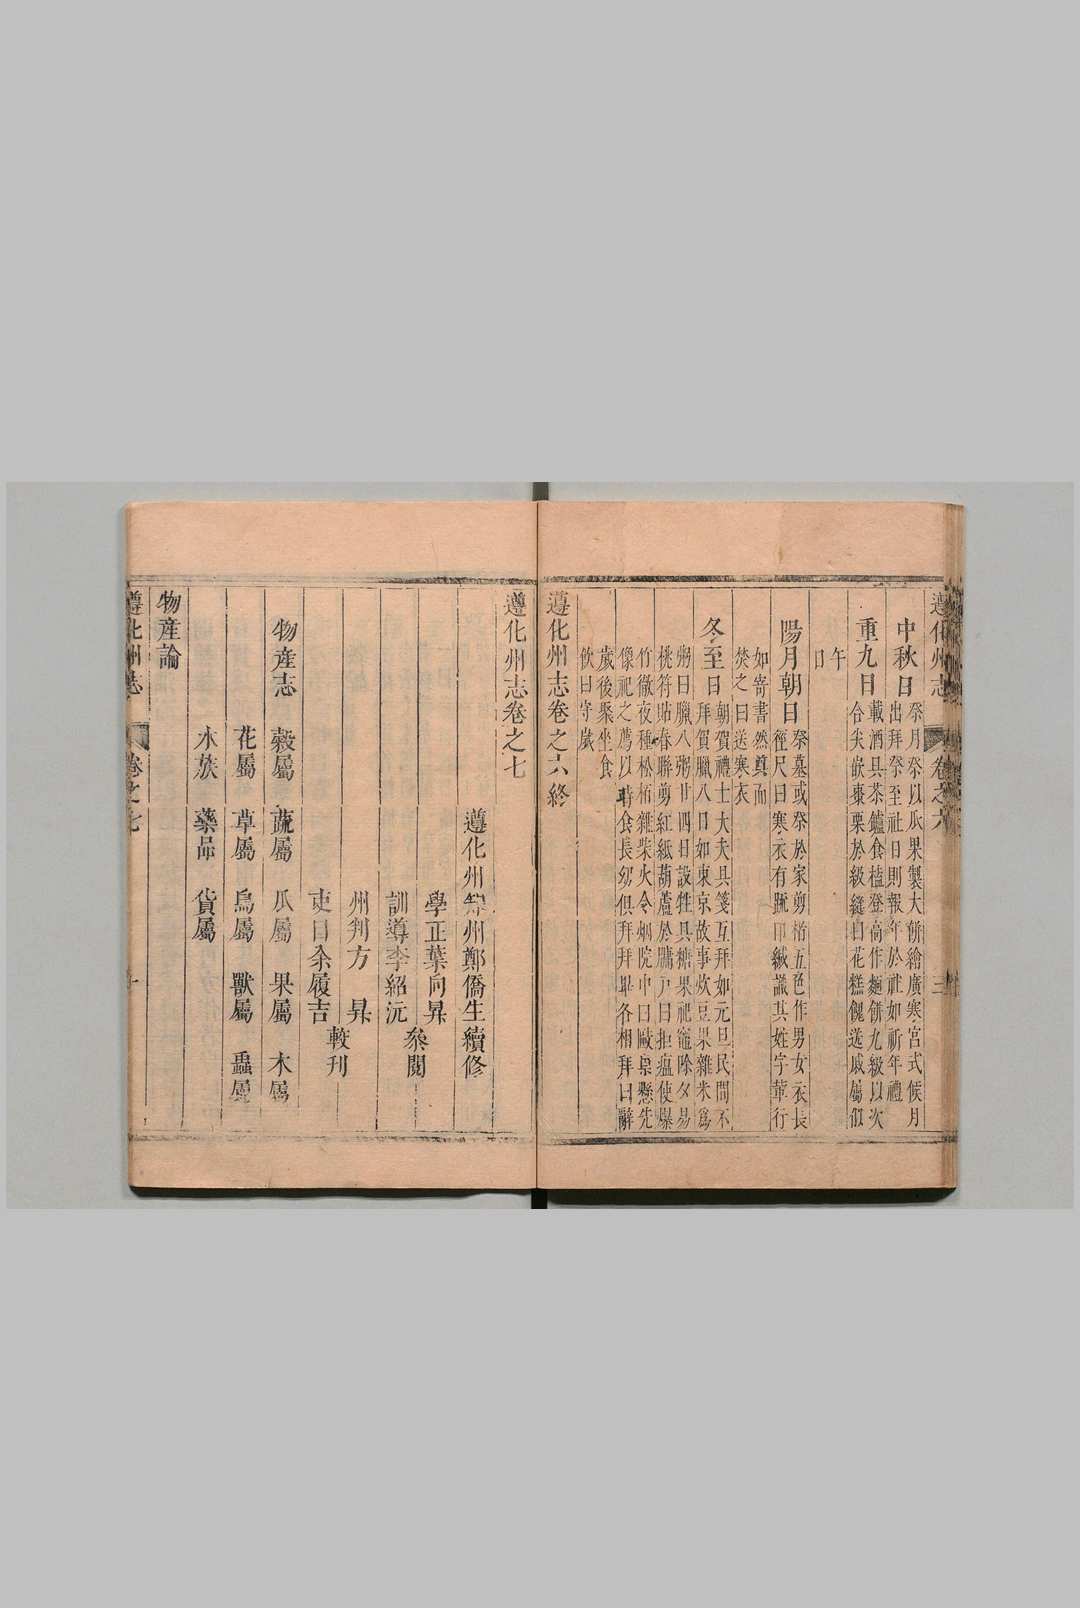 遵化州志 卷之六 三
中秋日 祭月祭以瓜果製大餅繪廣寒宮式候月
出拜祭至社日則報年於社如祈年禮
重九日 載酒具茶鑪食榼登高作麵餅九級以次
合尖嵌棗栗於級縫曰花糕餽送戚屬似
午
日
陽月朝日 祭墓或祭於家剪楮五色作男女衣長
徑尺曰寒衣有疏印緘識其姓字輩行
如寄書然奠而
焚之曰送寒衣
冬至日 朝賀禮士大夫具箋互拜如元旦民間不
拜賀臘八日如東京故事炊豆果雜米為
粥曰臘八粥廿四日設牲具糖果祀竈除夕易
桃符貼春聯剪紅紙葫蘆於牖戶曰拒瘟使爆
竹徹夜種松栢雜柴火令烟院中曰歐祟懸先
像祀之薦以時食長幼俱拜拜畢各相拜曰辭
歲後聚坐食
飲曰守歲
遵化州志卷之六終
遵化州志卷之七
遵化州知州鄭僑生續修
學正葉向昇
叅閱
訓導李紹沆
州判方 昇
較刊
吏目余履吉
物産志 穀屬 蔬屬 瓜屬 果屬 木屬
花屬 草屬 鳥屬 獸屬 蟲屬
水族 藥品 貨屬
物産論
遵化州志 卷之七 一